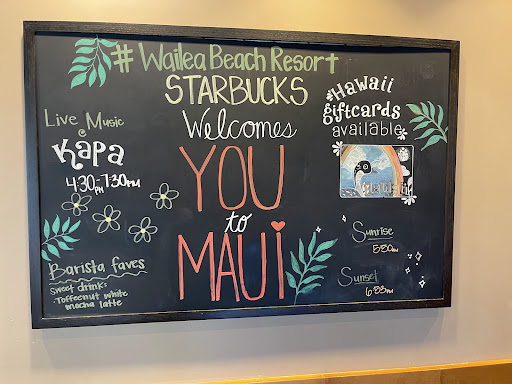 # Wailea Beach Resort
STARBUCKS
Welcomes
YOU
to
MAUI
Live Music
@
Kapa
4:30PM-7:30PM
Barista faves
Sweet drink:
·Toffeenut white
mocha latte
Hawaii
giftcards
available
Sunrise
Sunset